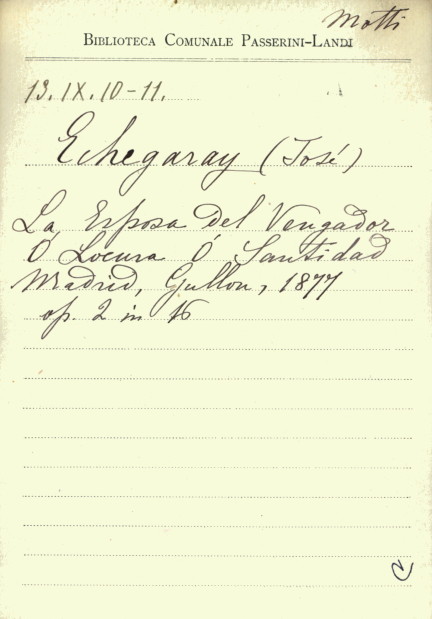 Motti
BIBLIOTECA COMUNALE PASSERINI-LANDI
13.IX.10-11.
Echegaray (José)
La Esposa del Vengador
O Locura Ó Santidad
Madrid, Gullon, 1877
op. 2 in 16